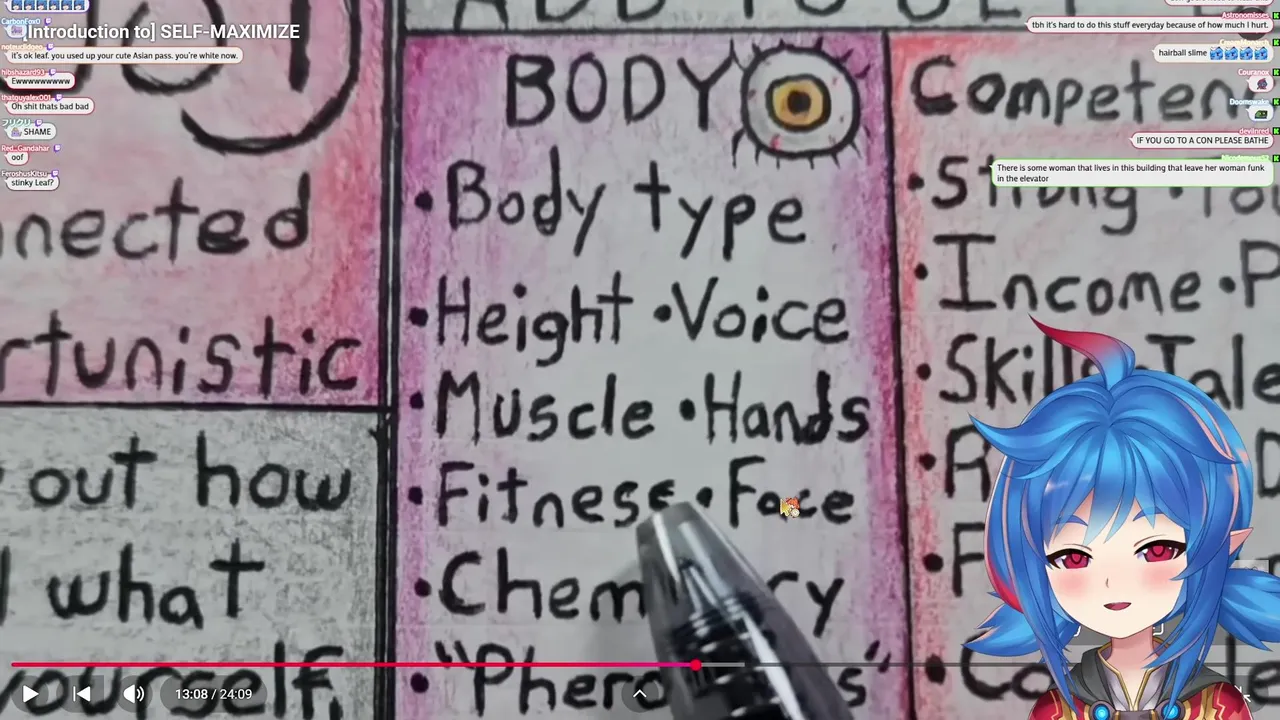 CarbonFox0
[Introduction to] SELF-MAXIMIZE
it's ok leaf. you used up your cute Asian pass. you're white now.
hibshazard93
Ewwwwwwwww
thatguyalex001
Oh shit thats bad bad
SHAME
Red_Gandahar
oof
FeroshusKitsu
stinky Leaf?
nnected
rtunistic
out how
what
yourself,
ADD TO SET
BODY
• Body type
• Height • Voice
• Muscle • Hands
• Fitness • Face
• Chem ry
• "Phero s"
Competen
• Strong
• Income • P
• Skills Tale
• R
• F
• Co
Astronomisses
tbh it's hard to do this stuff everyday because of how much I hurt.
hairball slime
Couranox
Doomswake
devilnred
IF YOU GO TO A CON PLEASE BATHE
There is some woman that lives in this building that leave her woman funk
in the elevator
13:08 / 24:09